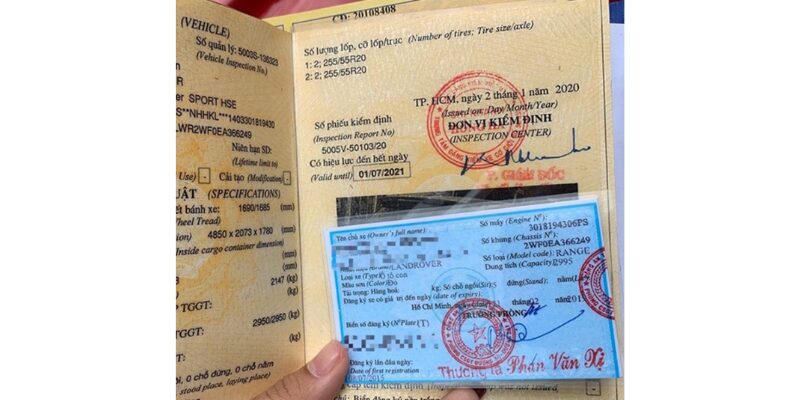 CD: 20108408
(VEHICLE)
Số quản lý: 5003S-136323
(Vehicle Inspection No.)
SPORT HSE
LWR2WF0EA366249
Niên hạn SD:
(Lifetime limit to)
Cải tạo (Modification)
(SPECIFICATIONS)
1690/1685 (mm)
4850 x 2073 x 1780 (mm)
(mm)
2147 (kg)
TGGT:
2950/2950 (kg)
(kg)
0 chỗ đứng, 0 chỗ nằm
stood place, laying place)
Số lượng lốp, cỡ lốp/trục (Number of tires; Tire size/axle)
1: 2; 255/55R20
2: 2; 255/55R20
TP. HCM, ngày 2 tháng 1 năm 2020
(Issued on: Day/Month/Year)
Số phiếu kiểm định
ĐƠN VỊ KIỂM ĐỊNH
(Inspection Report No)
(INSPECTION CENTER)
5005V-50103/20
Có hiệu lực đến hết ngày
(Valid until) 01/07/2021
P. GIÁM ĐỐC
Tên chủ xe (Owner's full name):
Số máy (Engine Nº):
3018194306PS
Số khung (Chassis Nº):
2WF0EA366249
LANDROVER
Số loại (Model code): RANGE
Loại xe (Type)
Dung tích (Capacity): 2995
Màu sơn (Color)
Tải trọng: Hàng hoá: kg; Số chỗ ngồi
Đứng (Stand):
Đăng ký xe có giá trị đến ngày (date of expiry):
Hồ Chí Minh,
TRƯỞNG PHÒNG
Biển số đăng ký (Nº Plate)
Đăng ký lần đầu ngày:
Date of first registration
Thượng tá Phán Văn Xệ